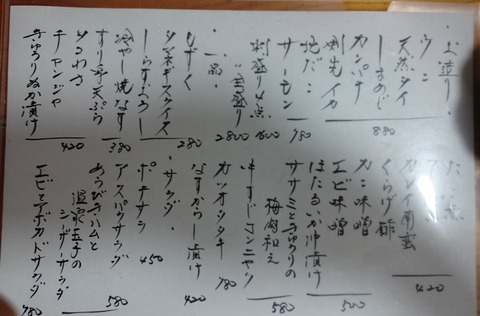 ・お造り・
ウニ
天然タイ
しまあじ
880
カンパチ
剣先イカ
地だこ
サーモン
780
刺盛り4点
1600
〃 盛り
2800
・一品・
もずく
280
シソネギスライス
しらすおろし
冷やし焼なす
380
すり身天ぷら
たたみいわし
チャンジャ
きゅうりぬか漬け
420
カレイ南蛮
420
くらげ酢
カニ味噌
エビ味噌
500
ほたるいか沖漬け
ササミときゅうりの
梅肉和え
580
牛すじコンニャク
カツオタタキ
780
なすからし漬け
420
・サラダ・
ポテサラ
450
アスパラサラダ
580
あらびきハムと
温泉玉子の
シーザーサラダ
エビとアボカドサラダ
780